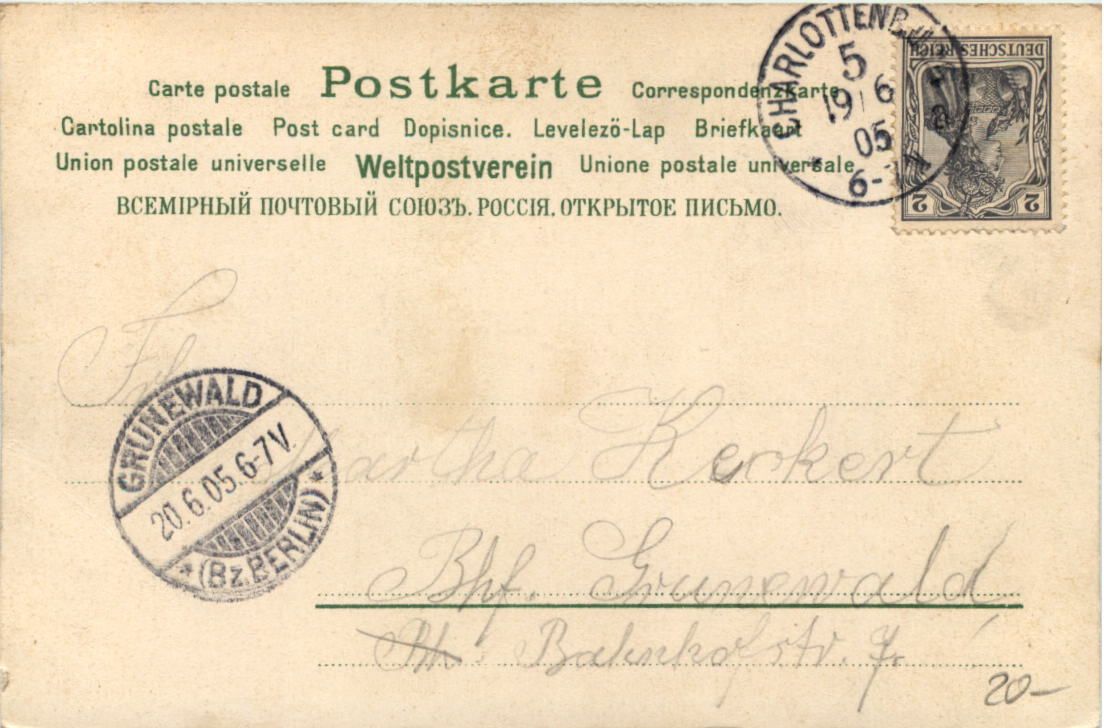 Carte postale Postkarte Correspondenzkarte
Cartolina postale Post card Dopisnice. Levelezö-Lap Briefkaart
Union postale universelle Weltpostverein Unione postale universale
ВСЕМІРНЫЙ ПОЧТОВЫЙ СОЮЗЪ. РОССІЯ. ОТКРЫТОЕ ПИСЬМО.
CHARLOTTENBURG
5
19 6
05
6-7N
a
DEUTSCHES REICH
2 2
Frl.
Martha Kerkert
Bhf. Grunewald
Bahnhofstr. 7.
GRUNEWALD
20.6.05.6-7V.
(Bz. BERLIN)
20-